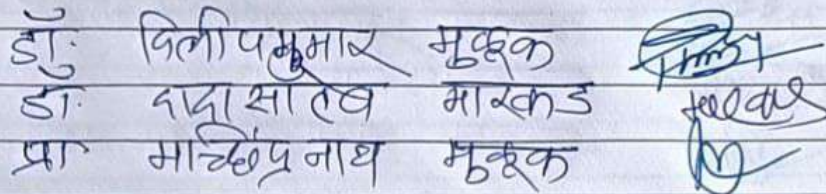 डॉ. दिलीपकुमार मुळूक
डा. दादासाहेब मारकड
प्रा मच्छिंद्र नाथ मुळूक